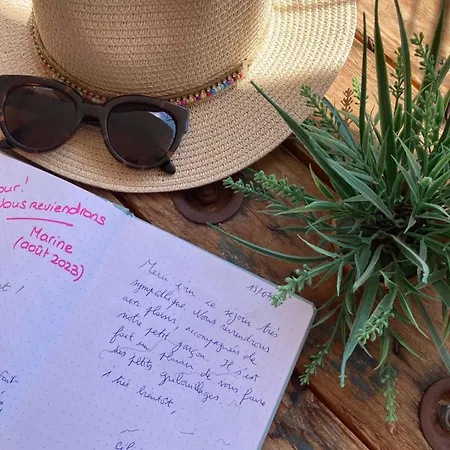 our !
ous reviendrons
Marine
(août 2023)
t !
fait
13/07
Merci pour ce séjour très
sympathique. Nous reviendrons
avec plaisir, accompagnés de
notre petit garçon. Il s'est
fait un plaisir de vous faire
des petits gribouillages.
très bientôt,